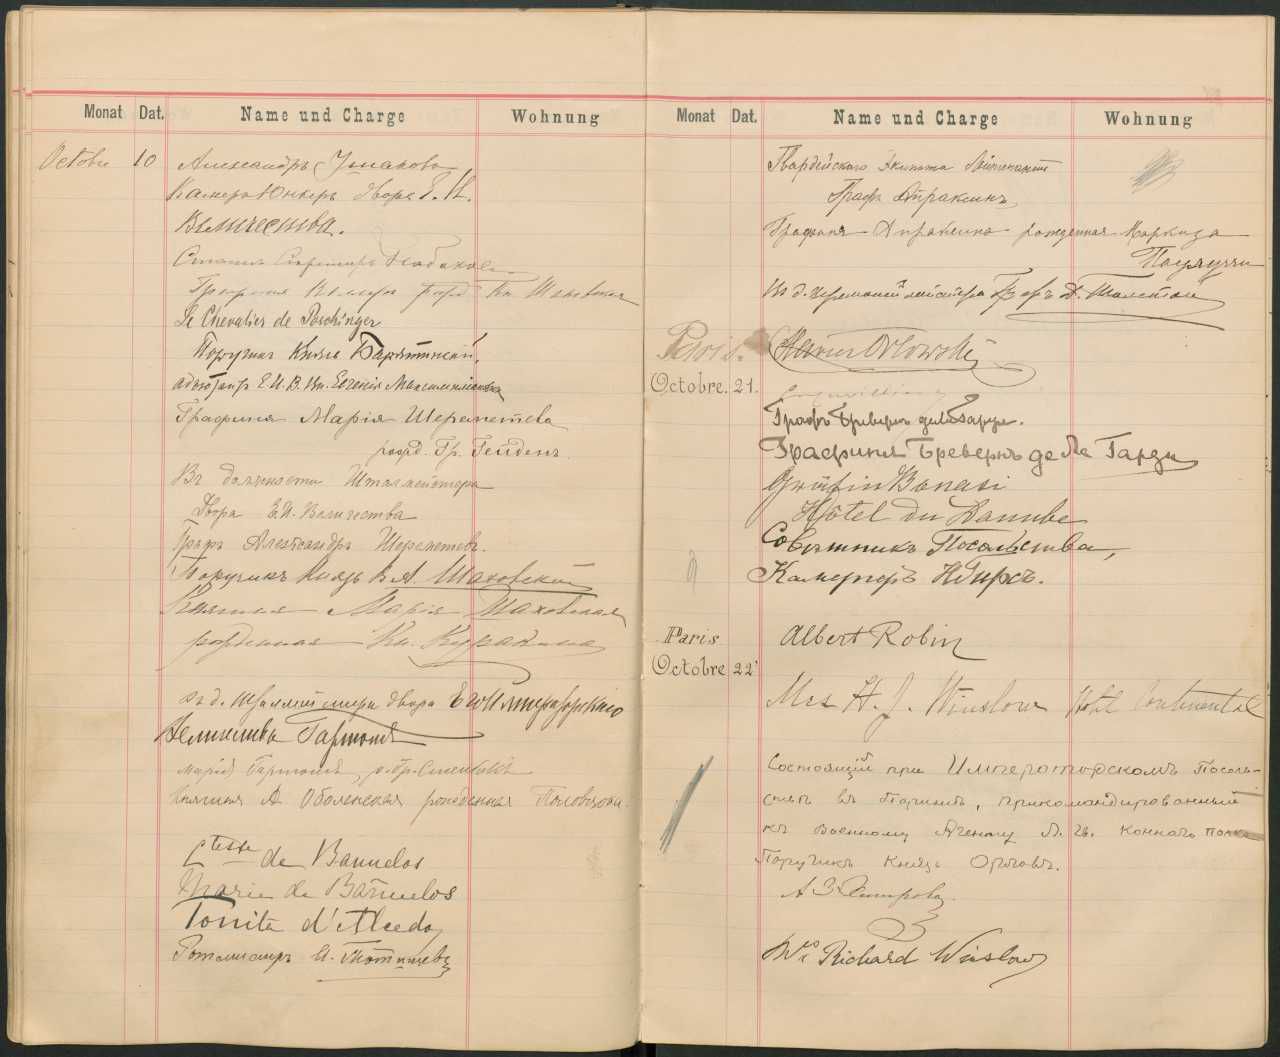 Monat Dat. Name und Charge Wohnung
Octobre 10 Александръ Ушаковъ
Камеръ Юнкеръ Двора Е. И.
Величества.
Статсъ Секретарь
Графиня рожд. Кн.
Le Chevalier de Poschinger
Поручикъ Князь Барятинскій,
адъютантъ Е. И. В. Кн. Евгенія Максимиліановича
Графиня Марія Шереметева
рожд. Гр. Гейденъ.
Въ должности Шталмейстера
Двора Е. И. Величества
Графъ Александръ Шереметевъ.
Поручикъ Князь В. А. Шаховской
Княгиня Марія Шаховская
рожденная Кн. Куракина
въ д. Шталмейстера двора Его Императорскаго
Величества Гартонгъ
Марія Гартонгъ, р. гр. Стенбокъ
Княгиня А Оболенская рожденная Половцова.
Ctesse de Banuelos
Marie de Bañuelos
Tonita d'Alcedo
Ротмистръ И. Татищевъ
Monat Dat. Name und Charge Wohnung
Гвардейскаго Экипажа Лейтенантъ
Графъ Апраксинъ
Графиня Апраксина рожденная Маркиза
Паулуччи
Въ д. Церемоніймейстера Графъ Д. Толстой
Paris. Orlowski
Octobre. 21.
Графъ Бреверъ де ла Гарди.
Графиня Бревернъ де Ла Гарди
Gräfin Banasi
Hôtel du Danube
Совѣтникъ Посольства,
Камергеръ Гирсъ.
Paris Albert Robin
Octobre 22
Mrs H. J. Winslow Hotel Continental
Состоящій при Императорскомъ Посоль-
ствѣ въ Парижѣ, прикомандированный
къ Военному Агенту Л. Гв. Коннаго полка
Поручикъ Князь Орловъ.
Mrs Richard Winslow